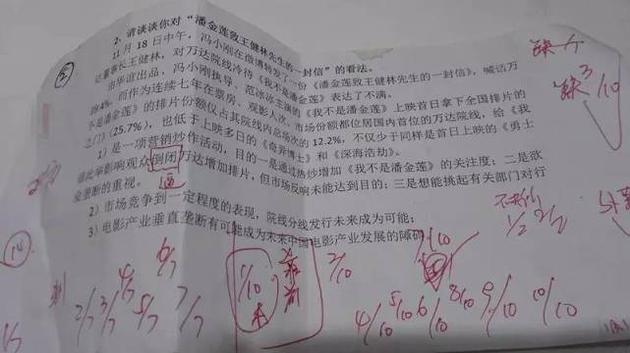 2. 请谈谈你对“潘金莲致王健林先生的一封信”的看法。
11月18日中午，冯小刚在微博转发了一份《潘金莲致王健林先生的一封信》，喊话万
达董事长王健林，对万达院线冷待《我不是潘金莲》表达了不满。
由华谊出品，冯小刚执导、范冰冰主演的《我不是潘金莲》上映首日拿下全国排片的
4%。而作为连续七年在票房、观影人次、市场份额都位居国内首位的万达院线，给《我
不是潘金莲》的排片份额仅占其院线内总场次的12.2%，不仅少于同样是首日上映的《勇士
之门》（25.7%），也低于上映多日的《奇异博士》和《深海浩劫》。
1）是一项营销炒作活动，目的一是通过热炒增加《我不是潘金莲》的关注度；二是欲
借此举影响观众倒闭万达增加排片，但市场反响未能达到目的；三是想能挑起有关部门对行
业垄断的重视。
逼
2）市场竞争到一定程度的表现，院线分线发行未来成为可能；
3）电影产业垂直垄断有可能成为未来中国电影产业发展的障碍
缺
缺3/10
14
1/2 2/2
2/10
2/7 3/7 4/7 5/7 6/7 7/7
1/10
4/10 5/10 6/10 8/10 9/10 10/10